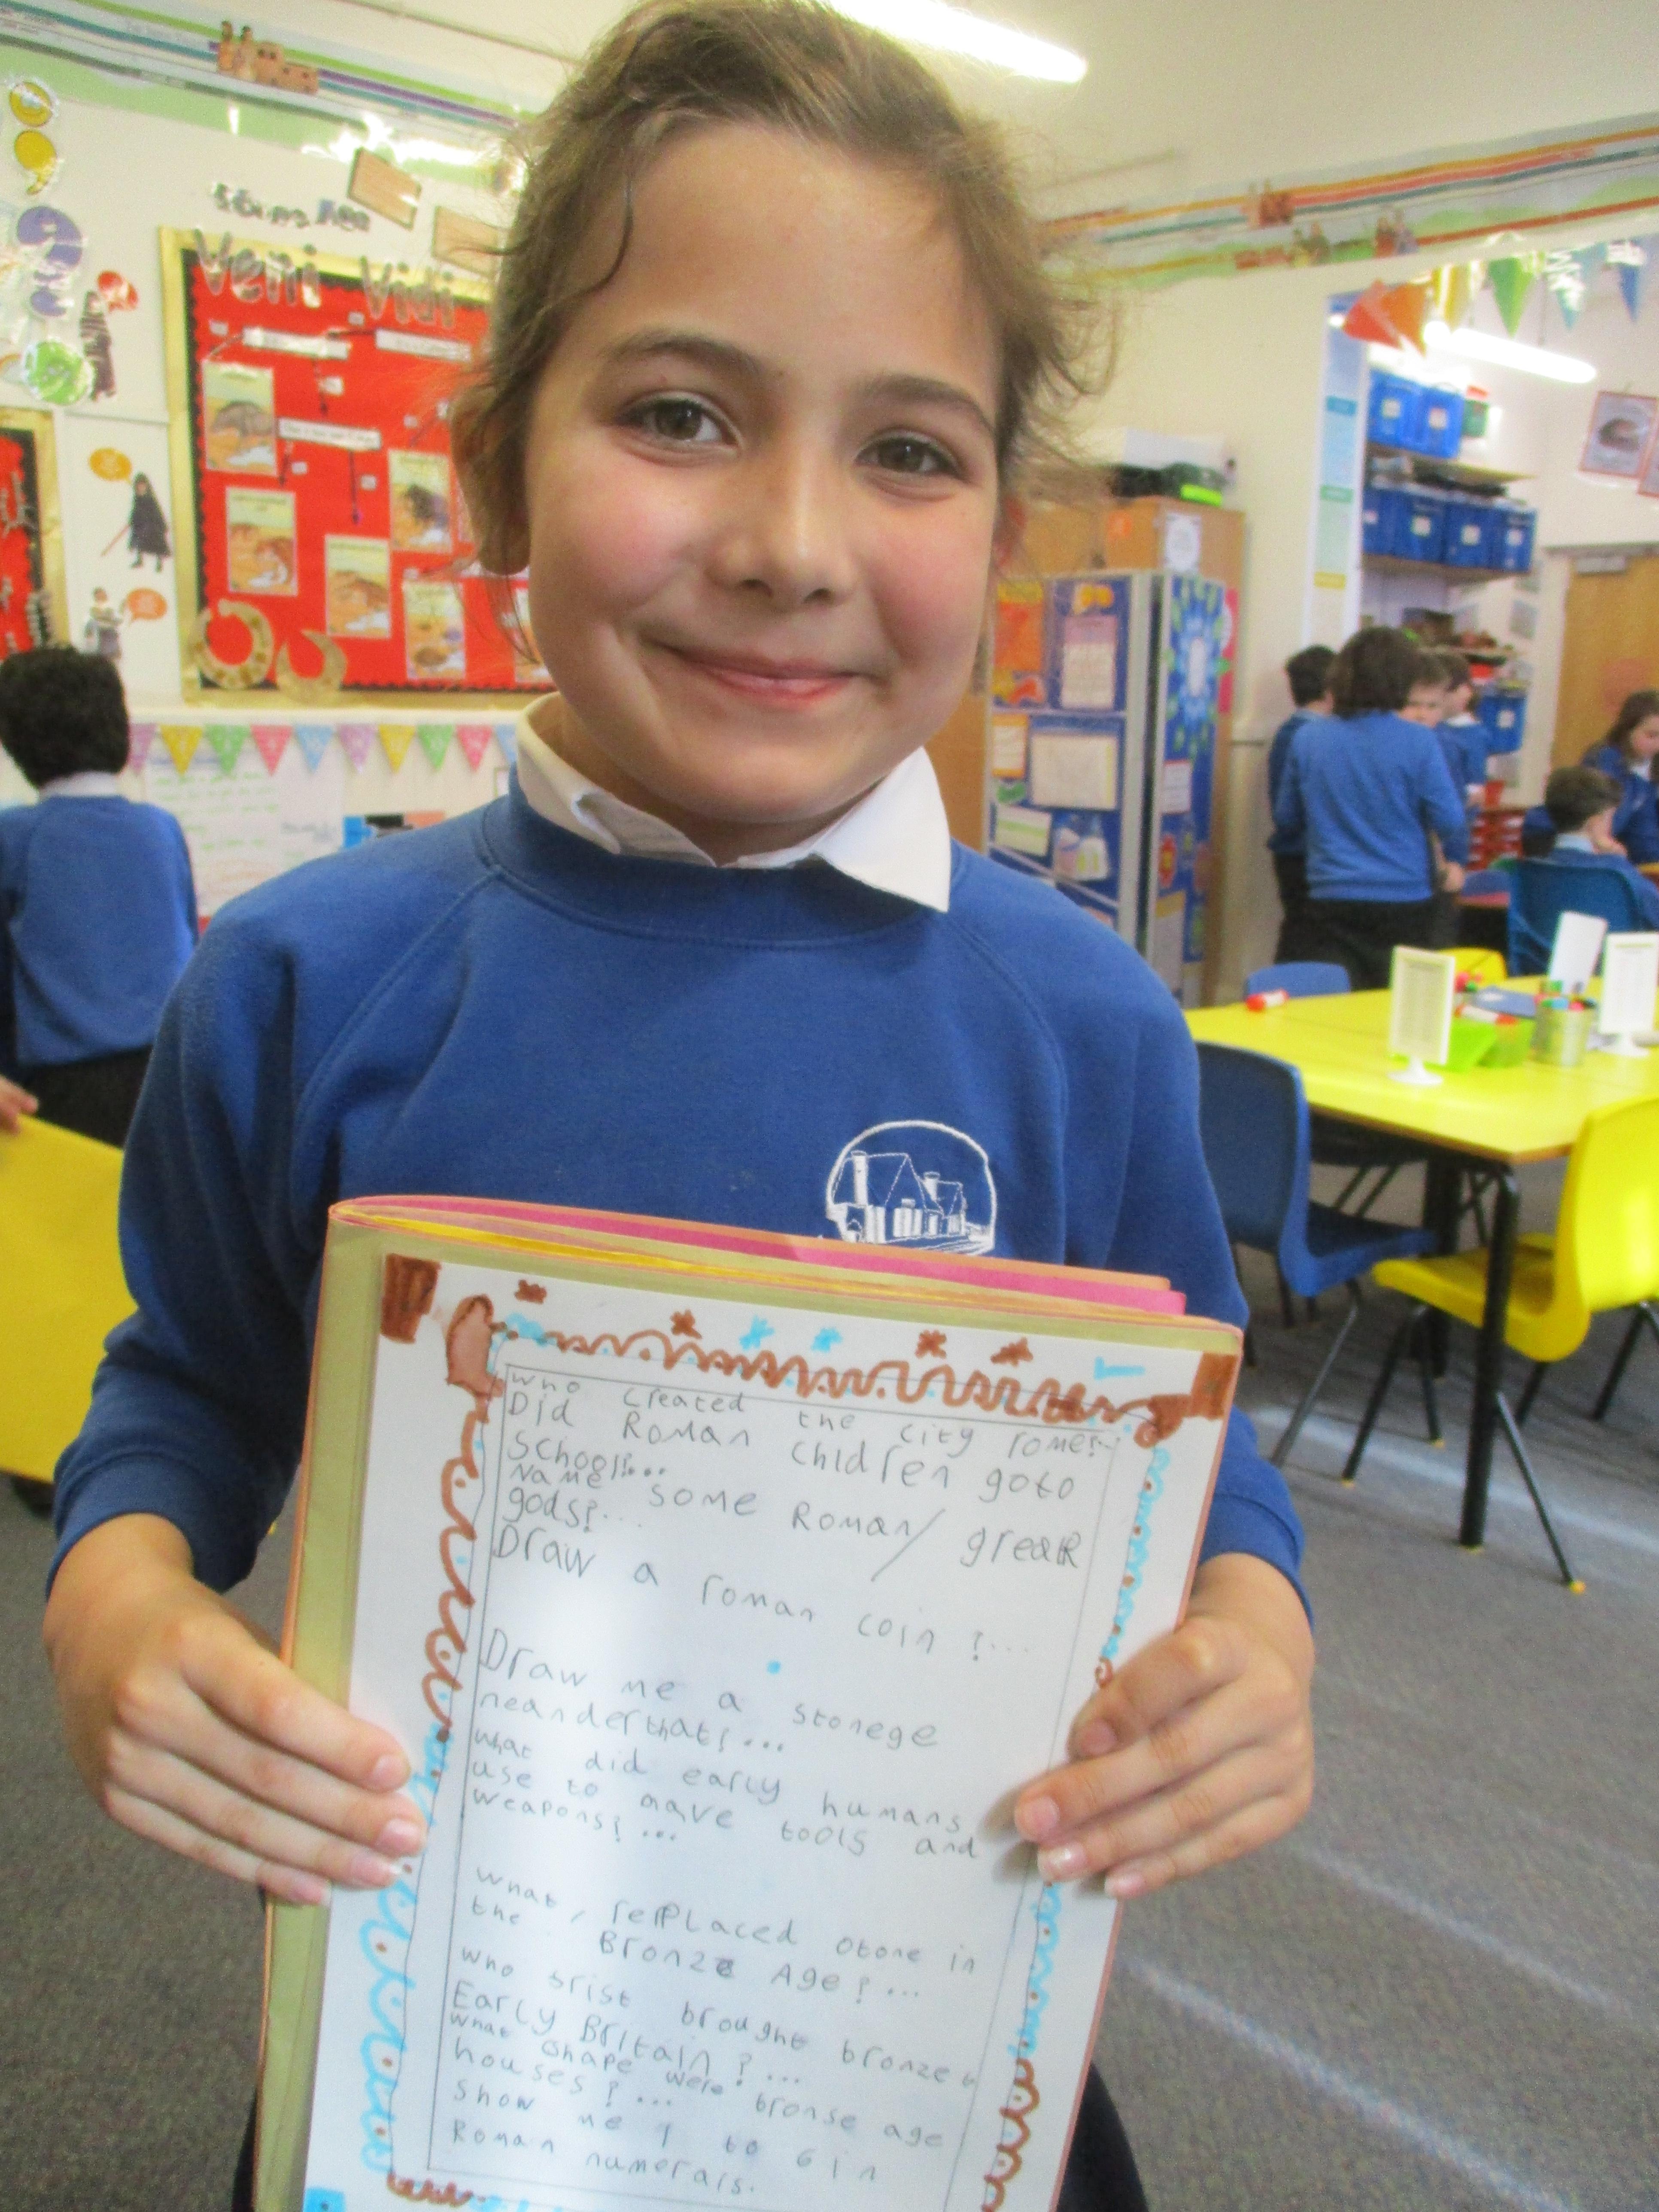 Stone Age
Veni Vidi
who created the city rome?
Did Roman children goto
School?...
Name some Roman/ greak
gods?...
Draw a roman coin ?...
Draw me a stonege
neanderthat?...
what did early humans
use to mave tools and
weapons?...
what, replaced otone in
the Bronze Age?...
who frist brought bronze to
Early Britain?...
what shape were bronse age
houses?...
show me 1 to 6 in
Roman numerals.